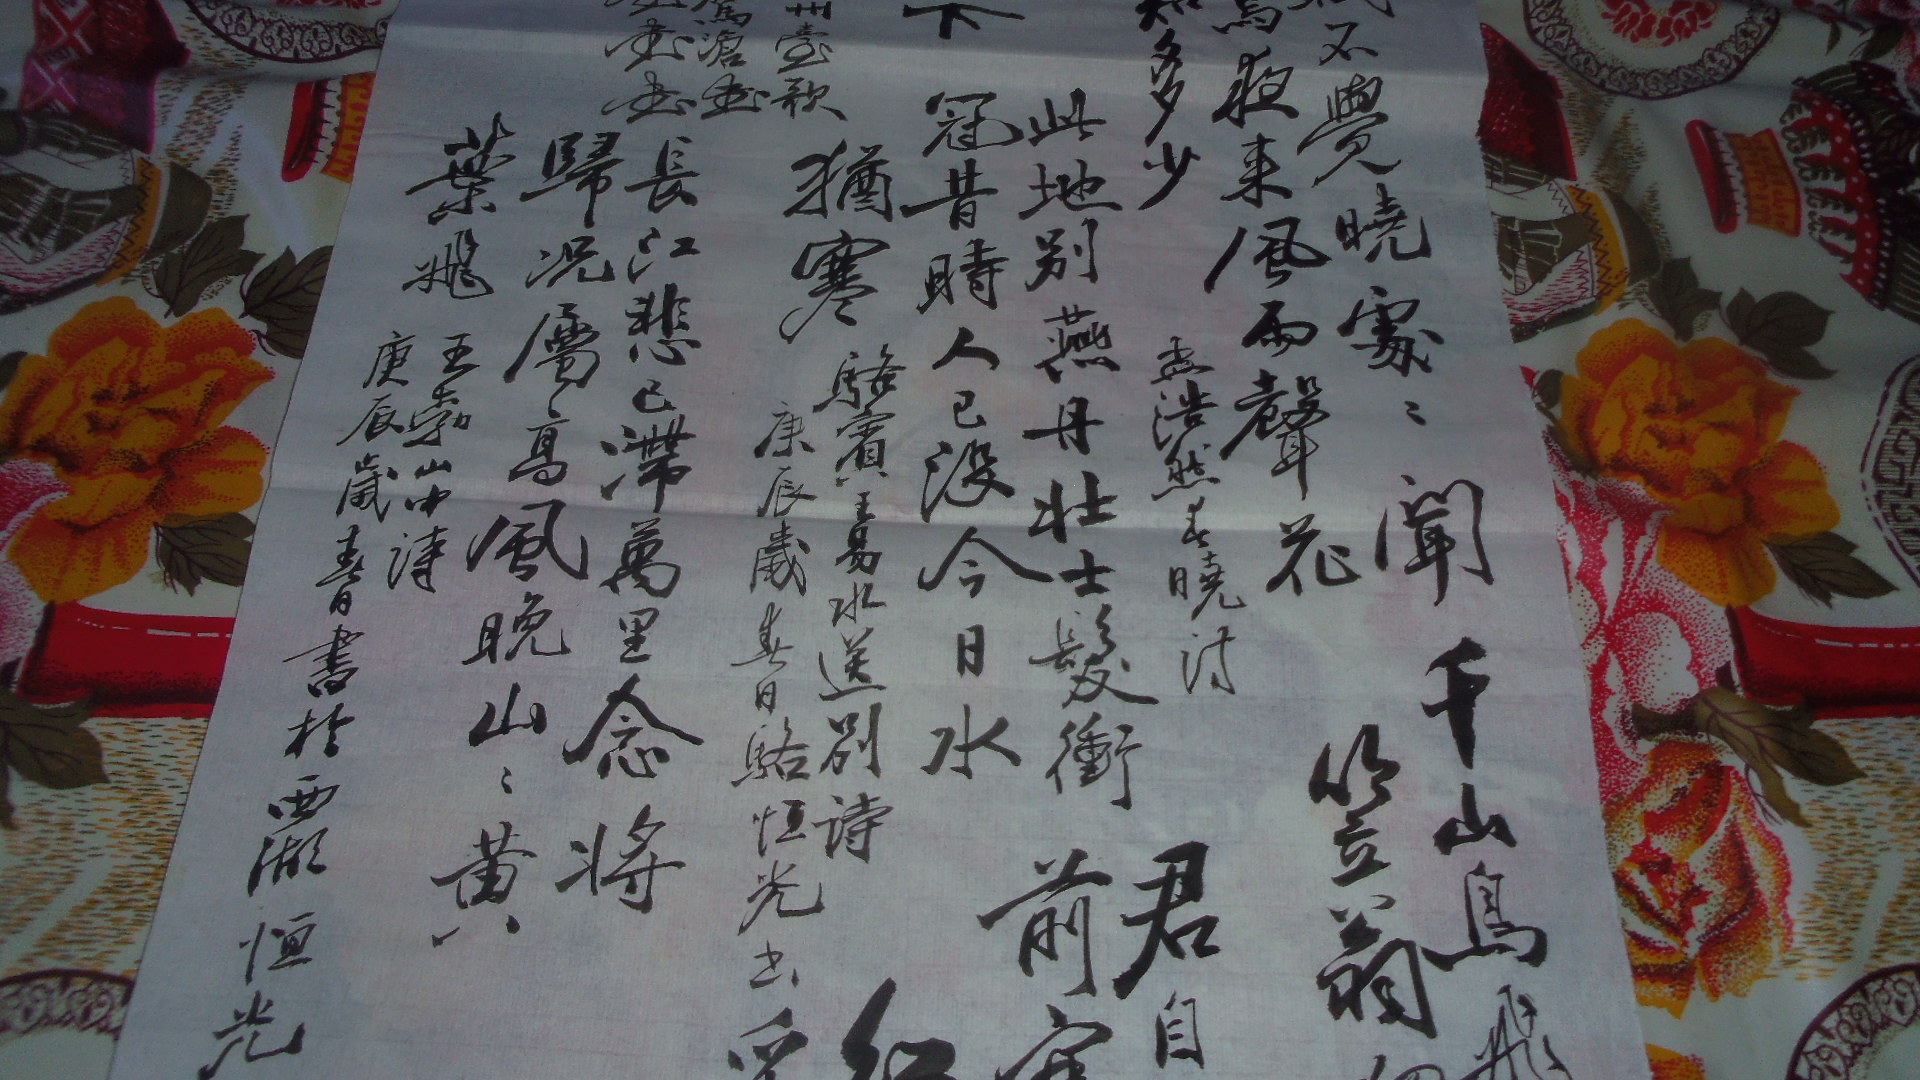 不覺曉處〻聞
夜来風雨聲花
多少
孟浩然春曉詩
千山鳥飛
笠翁
君自
前
此地别燕丹壮士髮衝
冠昔時人已没今日水
猶寒
駱賓王易水送别诗
庚辰歲春日駱恒光书
州臺歌
下
長江悲已滯萬里念将
歸况屬〻高風晚山〻黄
葉飛
王勃山中诗
庚辰歲春日書於西湖恒光